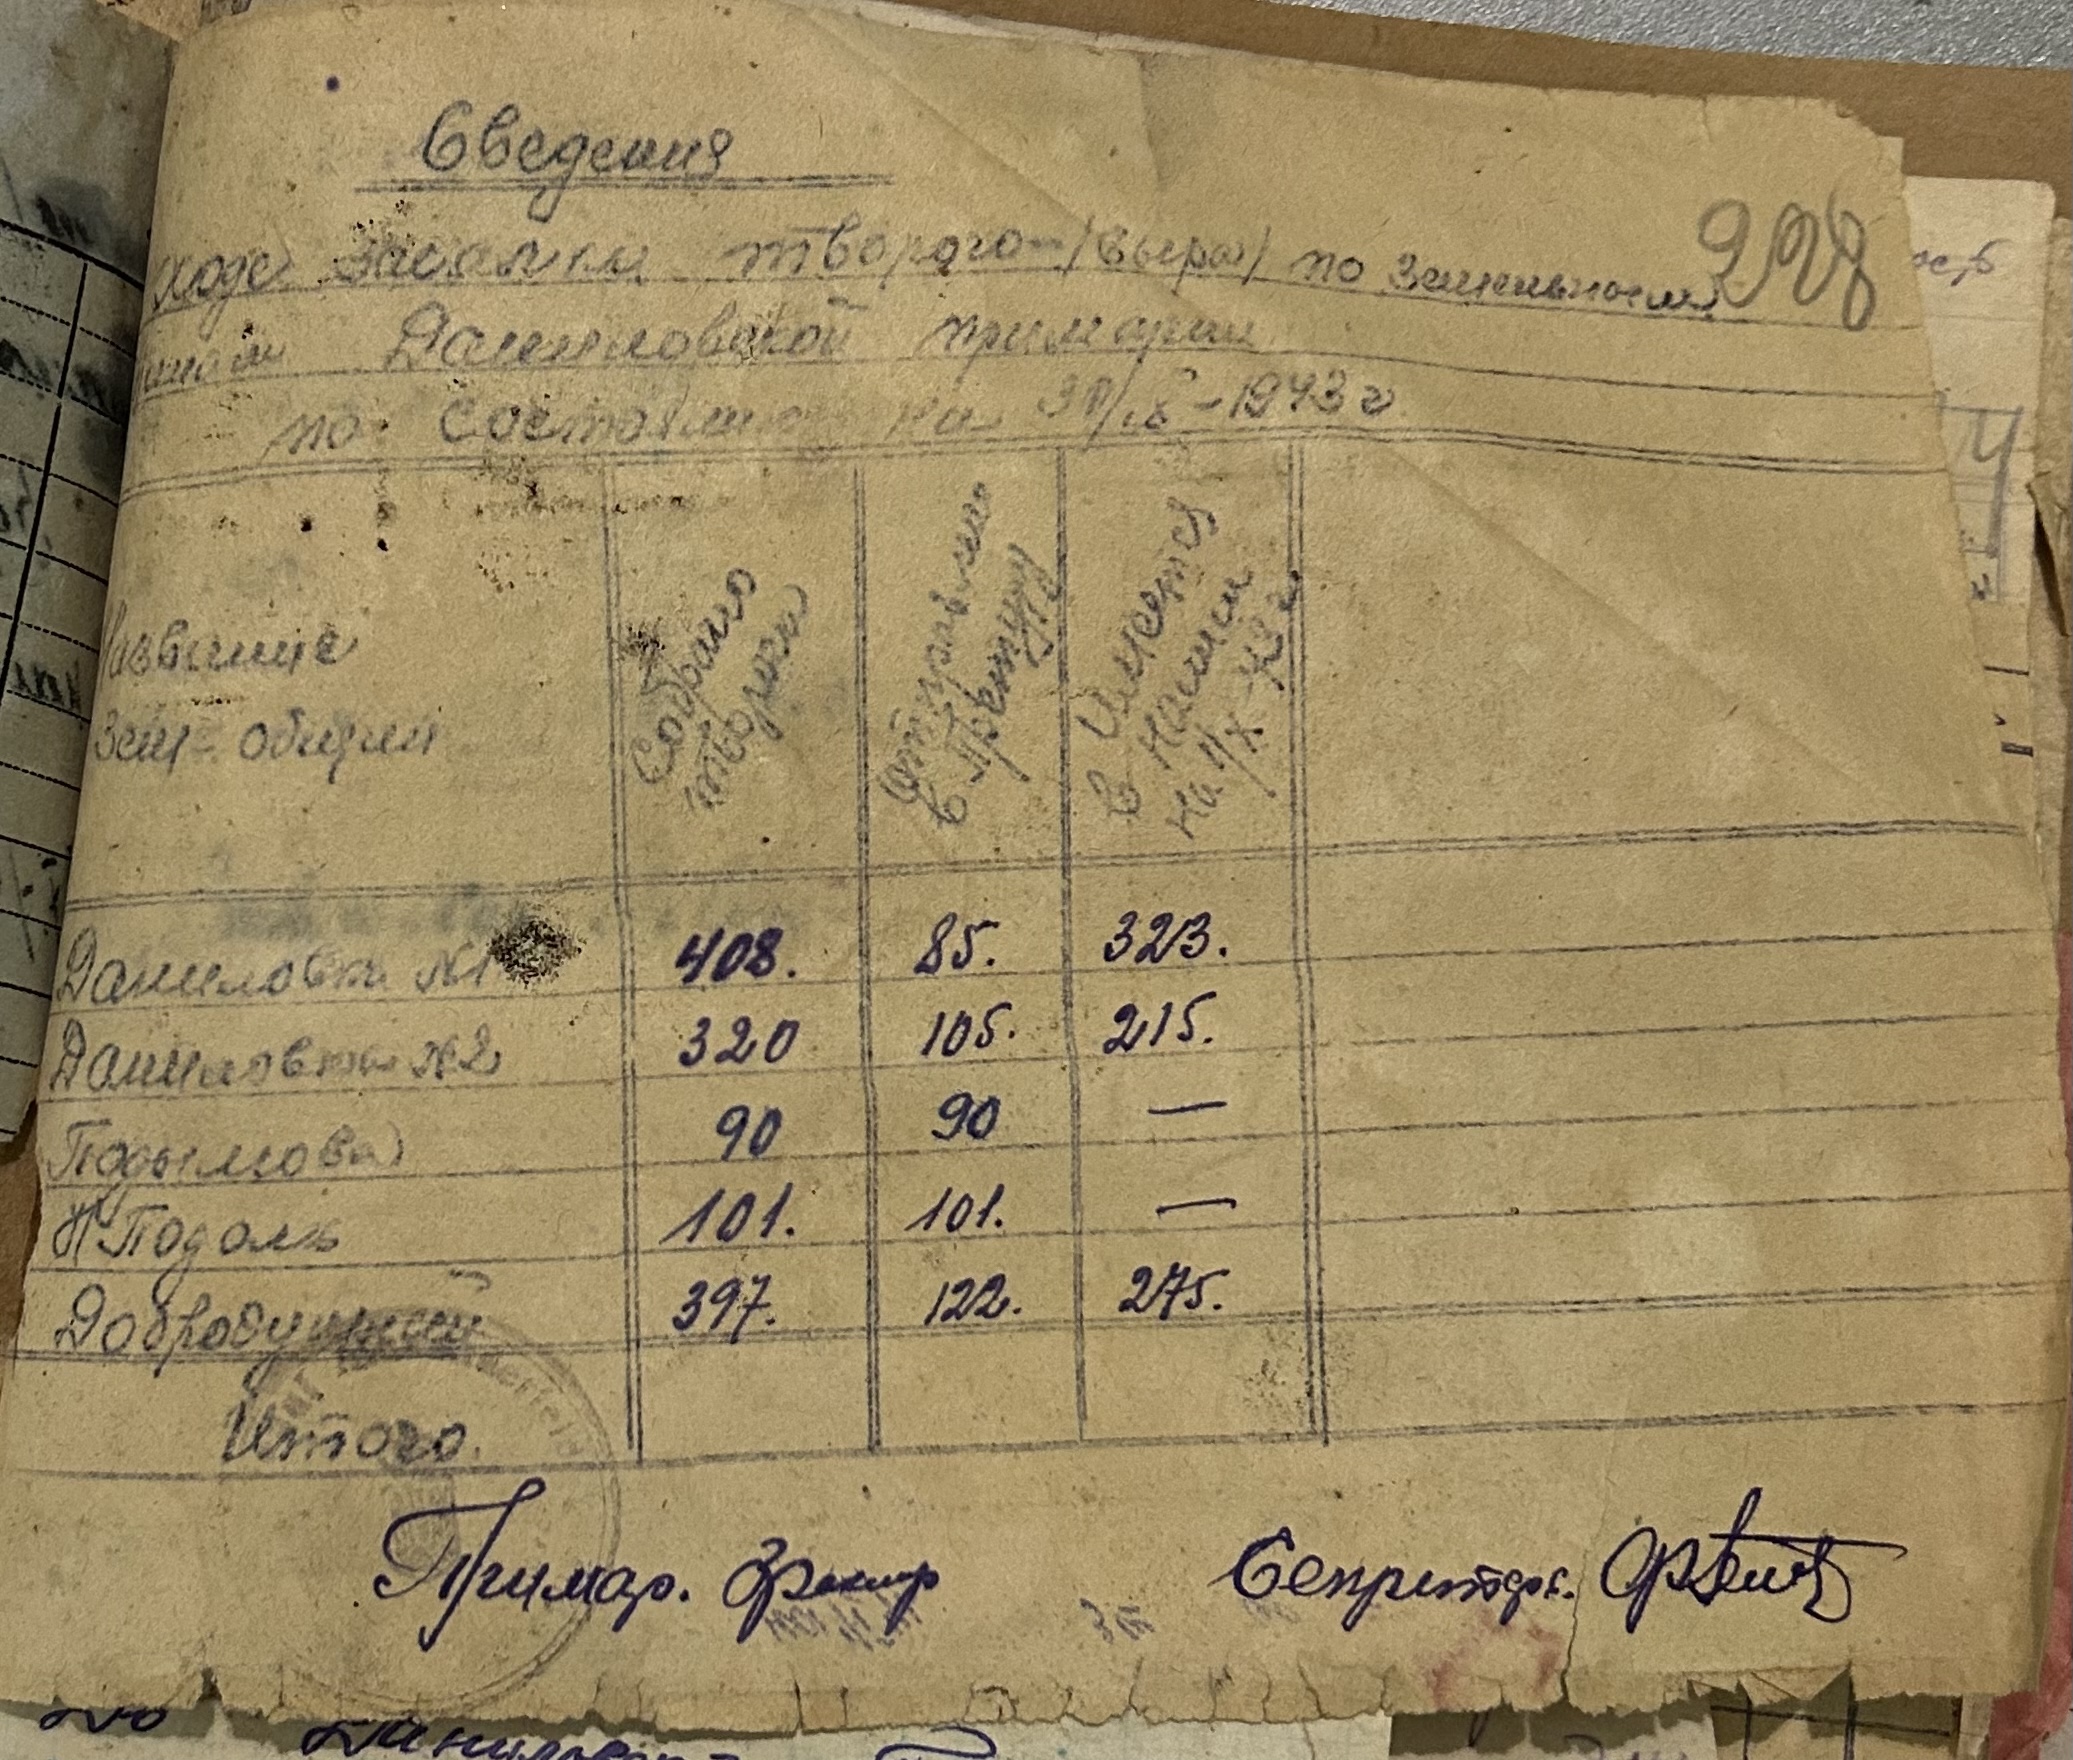 Сведения
ходе засолки творога (сыра) по земельным
щинам Даниловской примарии
по состоянию на 30/IX-1943 г
228
Название
зем- общин
Собрано
творога
Отправлено
в претуру
Имеется
в наличии
на 1/X-43 г
Даниловка №1 408. 85. 323.
Даниловка №2 320 105. 215.
Подымова 90 90 —
Н Подоль 101. 101. —
Добродушный 397. 122. 275.
Итого.
Примар. Секретарь.